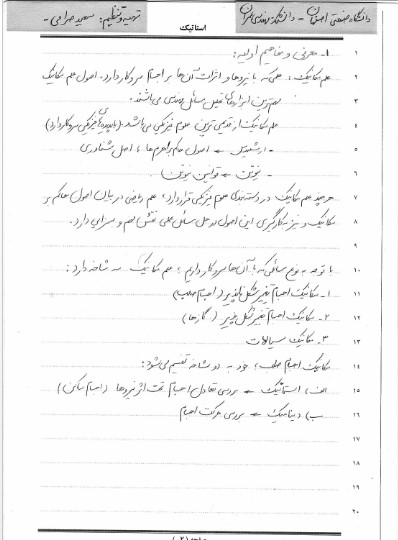 دانشگاه صنعتی اصفهان - دانشکده مهندسی عمران
تهیه و تنظیم: سعید صرامی -
استاتیک
۱ ۱- معرفی و مفاهیم اولیه:
۲ علم مکانیک: علمی که با نیروها و اثرات آن‌ها بر اجسام سروکار دارد. اصول علم مکانیک
۳ مهم‌ترین ابزارهای تحلیل مسائل مهندسی می‌باشند.
۴ علم مکانیک از قدیمی‌ترین علوم فیزیکی می‌باشد. (با پدیده‌های فیزیکی سروکار دارد)
۵ - ارشمیدس ← اصول حاکم بر اهرم‌ها، اصل شناوری
۶ - نیوتن ← قوانین نیوتن
۷ هرچند علم مکانیک در دسته‌بندی علوم فیزیکی قرار دارد، علم ریاضی در بیان اصول حاکم بر
۸ مکانیک و نیز بکارگیری این اصول در حل مسائل عملی نقش مهم و بسزایی دارد.
۹
۱۰ با توجه به نوع مسائلی که با آن‌ها سروکار داریم، علم مکانیک سه شاخه دارد:
۱۱ ۱- مکانیک اجسام تغییر شکل ناپذیر (اجسام صلب)
۱۲ ۲- مکانیک اجسام تغییر شکل پذیر
۱۳ ۳- مکانیک سیالات
۱۴ مکانیک اجسام صلب، خود به دو شاخه تقسیم می‌شود:
۱۵ الف) استاتیک ← بررسی تعادل اجسام تحت اثر نیروها (اجسام ساکن)
۱۶ ب) دینامیک ← بررسی حرکت اجسام
۱۷
۱۸
۱۹
۲۰
صفحه (۲)